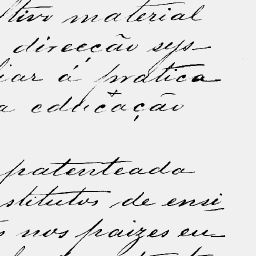 tivo material
direcção sys-
liar á pratica
a educação
patenteada
stitutos de ensi
s nos paizes eu-